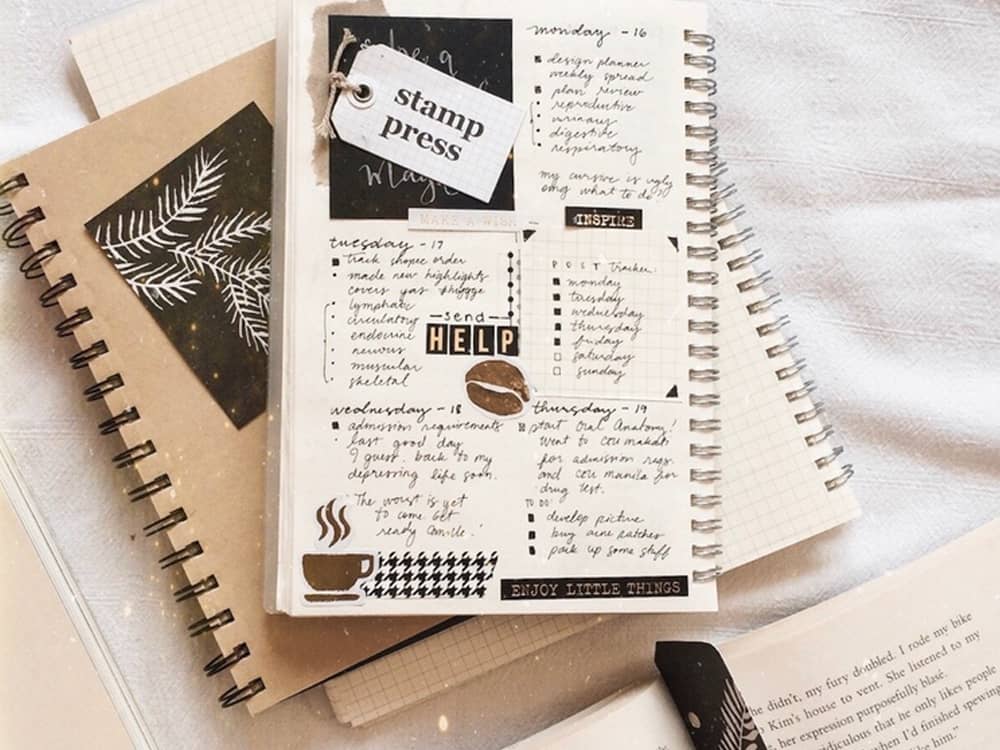 stamp
press
MAKE A WISH
monday - 16
design planner
weekly spread
plan review
reproductive
urinary
digestive
respiratory
my cursive is ugly
omg what to do?
INSPIRE
tuesday - 17
track shopee order
made new highlights
covers yas
lymphatic
circulatory
endocrine
nervous
muscular
skeletal
send
HELP
POST tracker:
monday
tuesday
wednesday
thursday
friday
saturday
sunday
wednesday - 18
admission requirements
last good day
I guess. back to my
depressing life soon.
The worst is yet
to come. Get
ready
thursday - 19
start Oral Anatomy!
went to ceu makati
for admission reqs.
and ceu manila for
drug test.
TO DO:
develop picture
buy acne patches
pack up some stuff
ENJOY LITTLE THINGS
he didn't, my fury doubled. I rode my bike
Kim's house to vent. She listened to my
, her expression purposefully blasé.
ridiculous that he only likes people
when I'd finished spewing
him."